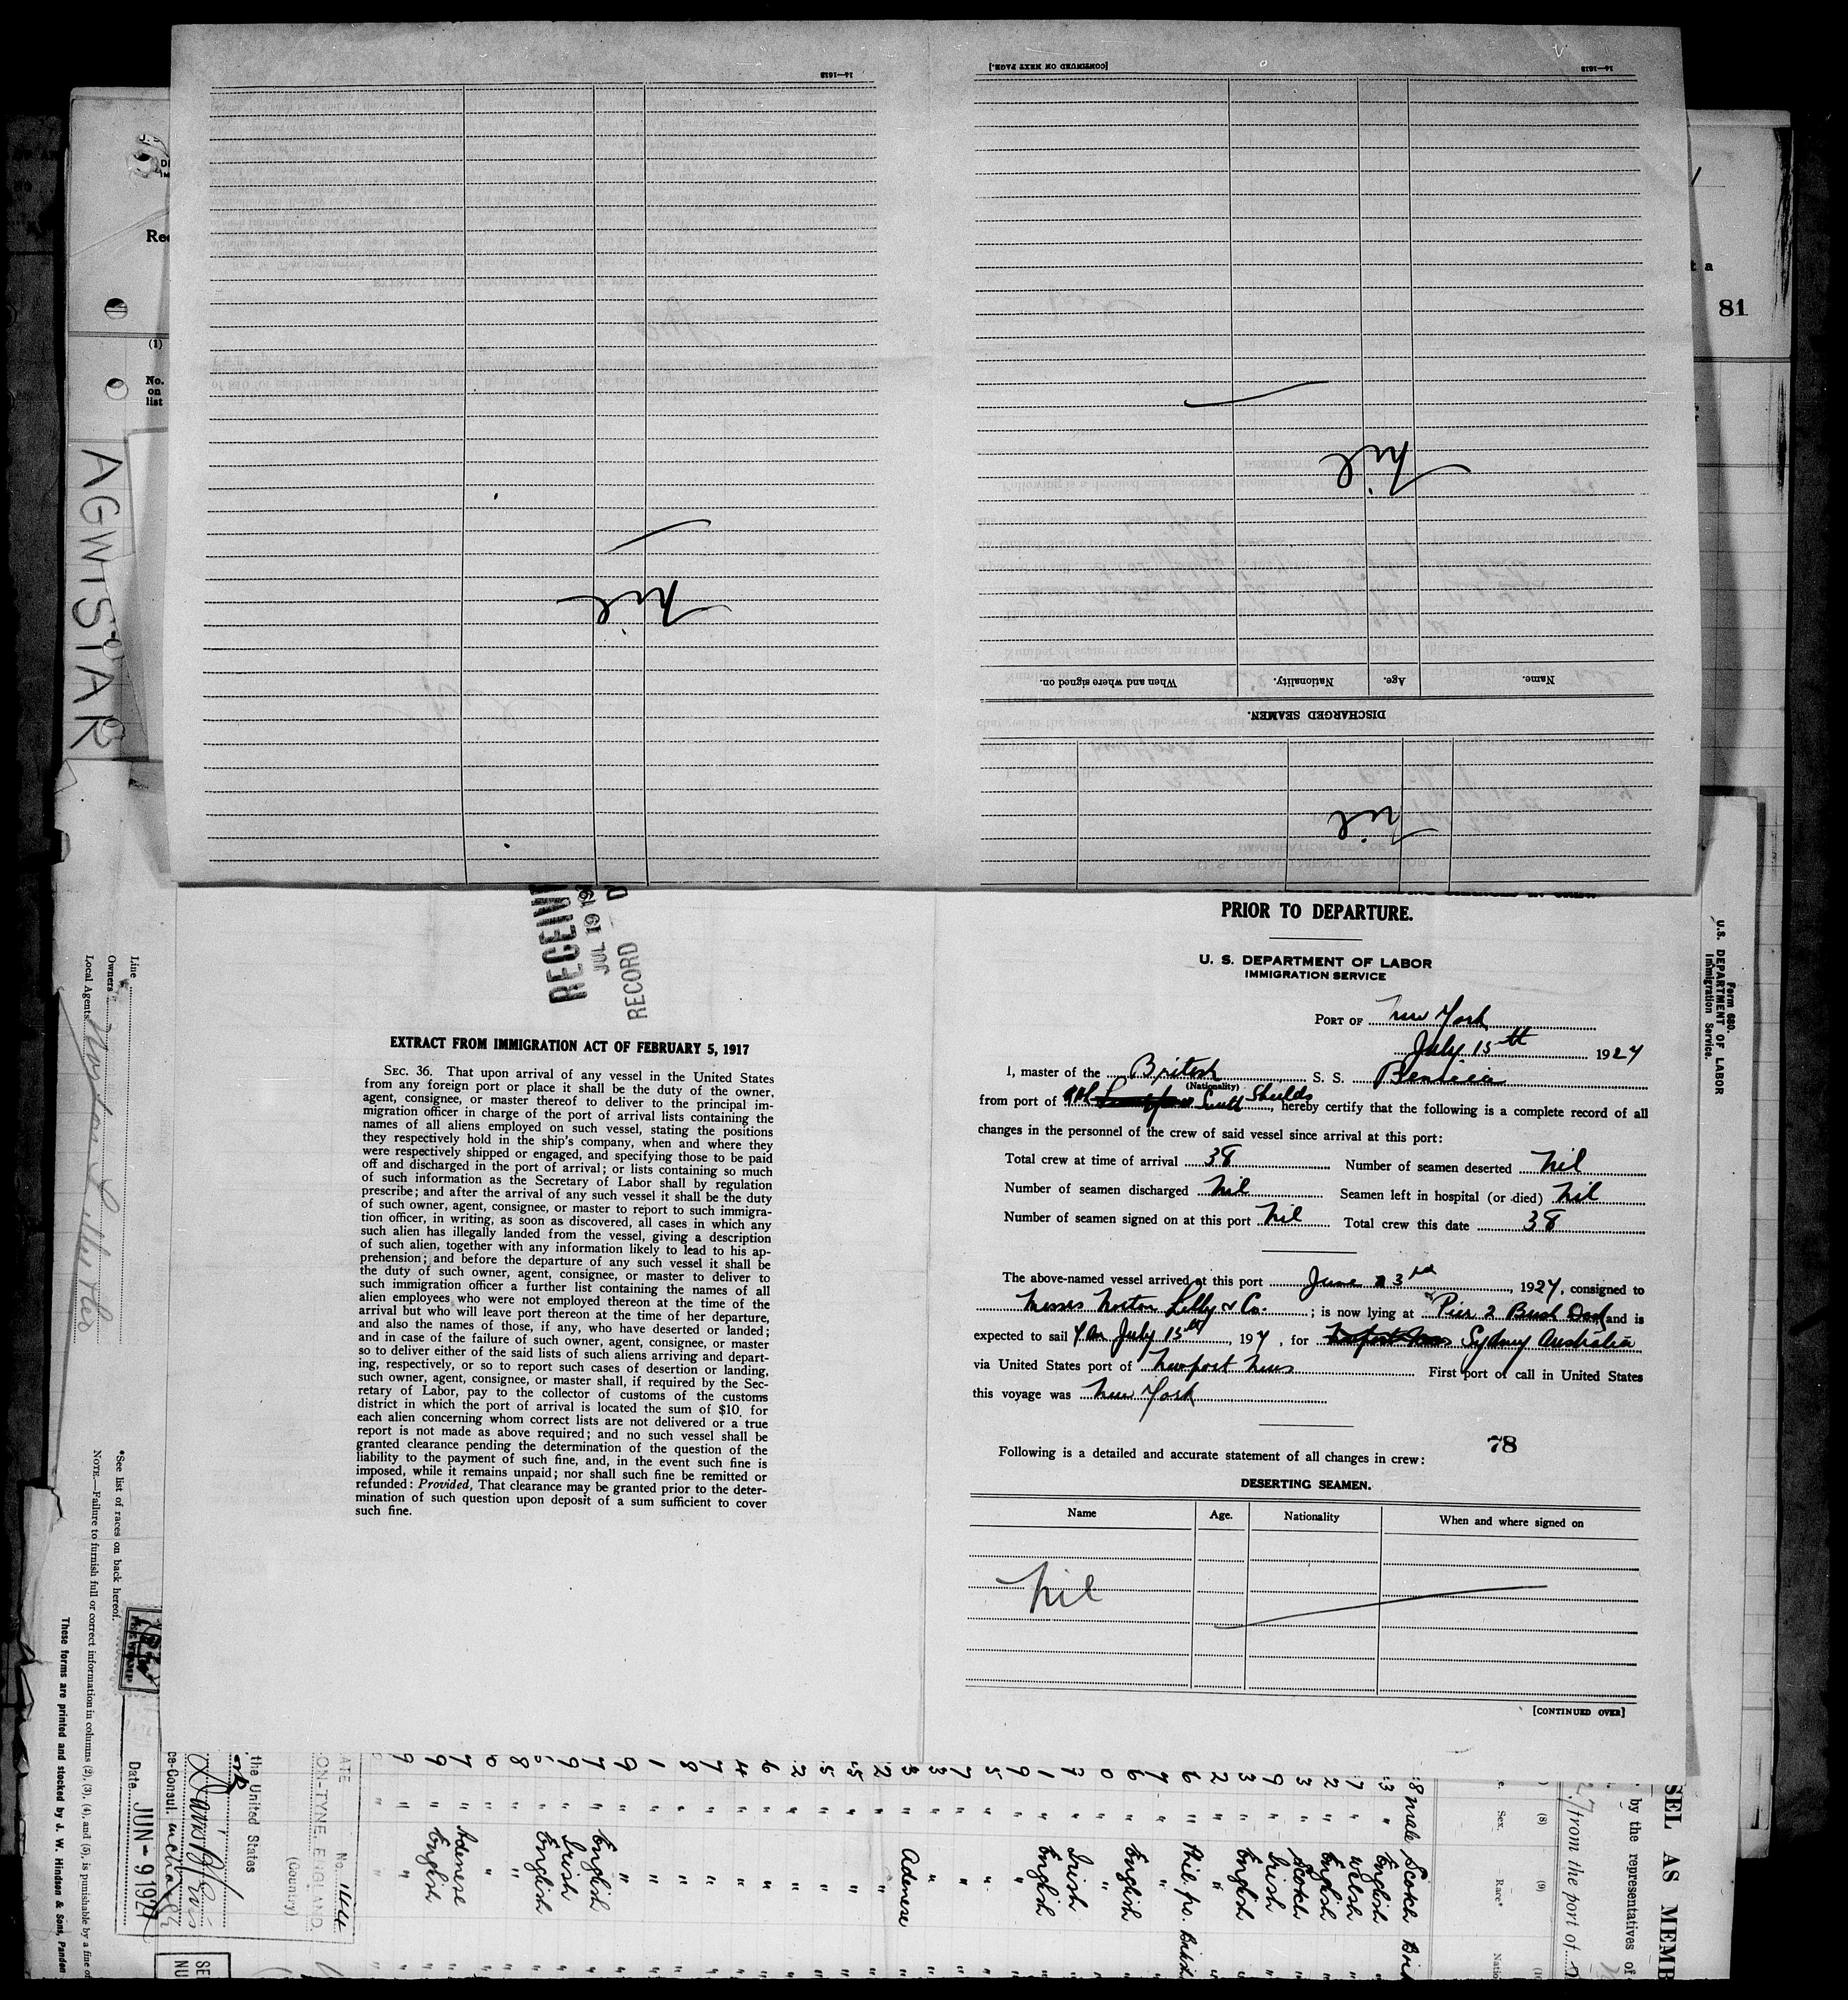 14—1618
[CONTINUED ON NEXT PAGE.]
14—1618
nil
nil
Name.
Age.
Nationality.
When and where signed on.
DISCHARGED SEAMEN.
nil
81
(1)
No.
on
list
AGWISTAR
RECEIV
JUL 19 19
RECORD
EXTRACT FROM IMMIGRATION ACT OF FEBRUARY 5, 1917
SEC. 36. That upon arrival of any vessel in the United States
from any foreign port or place it shall be the duty of the owner,
agent, consignee, or master thereof to deliver to the principal im-
migration officer in charge of the port of arrival lists containing the
names of all aliens employed on such vessel, stating the positions
they respectively hold in the ship's company, when and where they
were respectively shipped or engaged, and specifying those to be paid
off and discharged in the port of arrival; or lists containing so much
of such information as the Secretary of Labor shall by regulation
prescribe; and after the arrival of any such vessel it shall be the duty
of such owner, agent, consignee, or master to report to such immigra-
tion officer, in writing, as soon as discovered, all cases in which any
such alien has illegally landed from the vessel, giving a description
of such alien, together with any information likely to lead to his ap-
prehension; and before the departure of any such vessel it shall be
the duty of such owner, agent, consignee, or master to deliver to
such immigration officer a further list containing the names of all
alien employees who were not employed thereon at the time of the
arrival but who will leave port thereon at the time of her departure,
and also the names of those, if any, who have deserted or landed;
and in case of the failure of such owner, agent, consignee, or master
so to deliver either of the said lists of such aliens arriving and depart-
ing, respectively, or so to report such cases of desertion or landing,
such owner, agent, consignee, or master shall, if required by the Sec-
retary of Labor, pay to the collector of customs of the customs
district in which the port of arrival is located the sum of $10 for
each alien concerning whom correct lists are not delivered or a true
report is not made as above required; and no such vessel shall be
granted clearance pending the determination of the question of the
liability to the payment of such fine, and, in the event such fine is
imposed, while it remains unpaid; nor shall such fine be remitted or
refunded: Provided, That clearance may be granted prior to the deter-
mination of such question upon deposit of a sum sufficient to cover
such fine.
PRIOR TO DEPARTURE.
U. S. DEPARTMENT OF LABOR
IMMIGRATION SERVICE
PORT OF New York
July 15th 1924
I, master of the British S. S. Benicia
(Nationality)
from port of South Shields, hereby certify that the following is a complete record of all
changes in the personnel of the crew of said vessel since arrival at this port:
Total crew at time of arrival 38 Number of seamen deserted Nil
Number of seamen discharged Nil Seamen left in hospital (or died) Nil
Number of seamen signed on at this port Nil Total crew this date 38
The above-named vessel arrived at this port June 23rd, 1924, consigned to
Messrs Norton Lilly & Co.; is now lying at Pier 2 Bush Dock and is
expected to sail July 15th, 1924, for Sydney Australia
via United States port of Newport News First port of call in United States
this voyage was New York
78
Following is a detailed and accurate statement of all changes in crew:
DESERTING SEAMEN.
Name Age. Nationality When and where signed on
Nil
[CONTINUED OVER]
Form 680.
U. S. DEPARTMENT OF LABOR
Immigration Service.
Line
Owners
Local Agents
*See list of races on back hereof.
NOTE.—Failure to furnish full or correct information in columns (2), (3), (4), and (5), is punishable by a fine of
These forms are printed and stocked by J. W. Hindson & Sons, Pandon
Date JUN - 9 1924
the United States
ON-TYNE, ENGLAND.
(Country)
No. 144
SEL AS MEMB
by the representatives of
from the port of
(8)
Sex.
(9)
Race*
male Scotch
" English
" Welsh
" English
" Scotch
" Irish
" English
" "
" English
" "
" Irish
" English
" Adenese
" English
" Irish
" English
" Adenese
" English